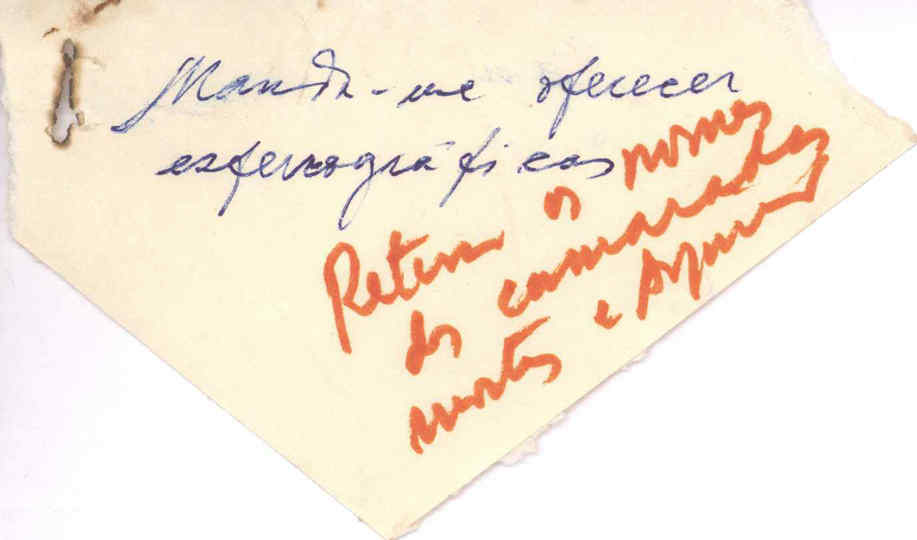 Manda-me oferecer
esferográficas
Reter os nomes
dos camaradas
mortos e